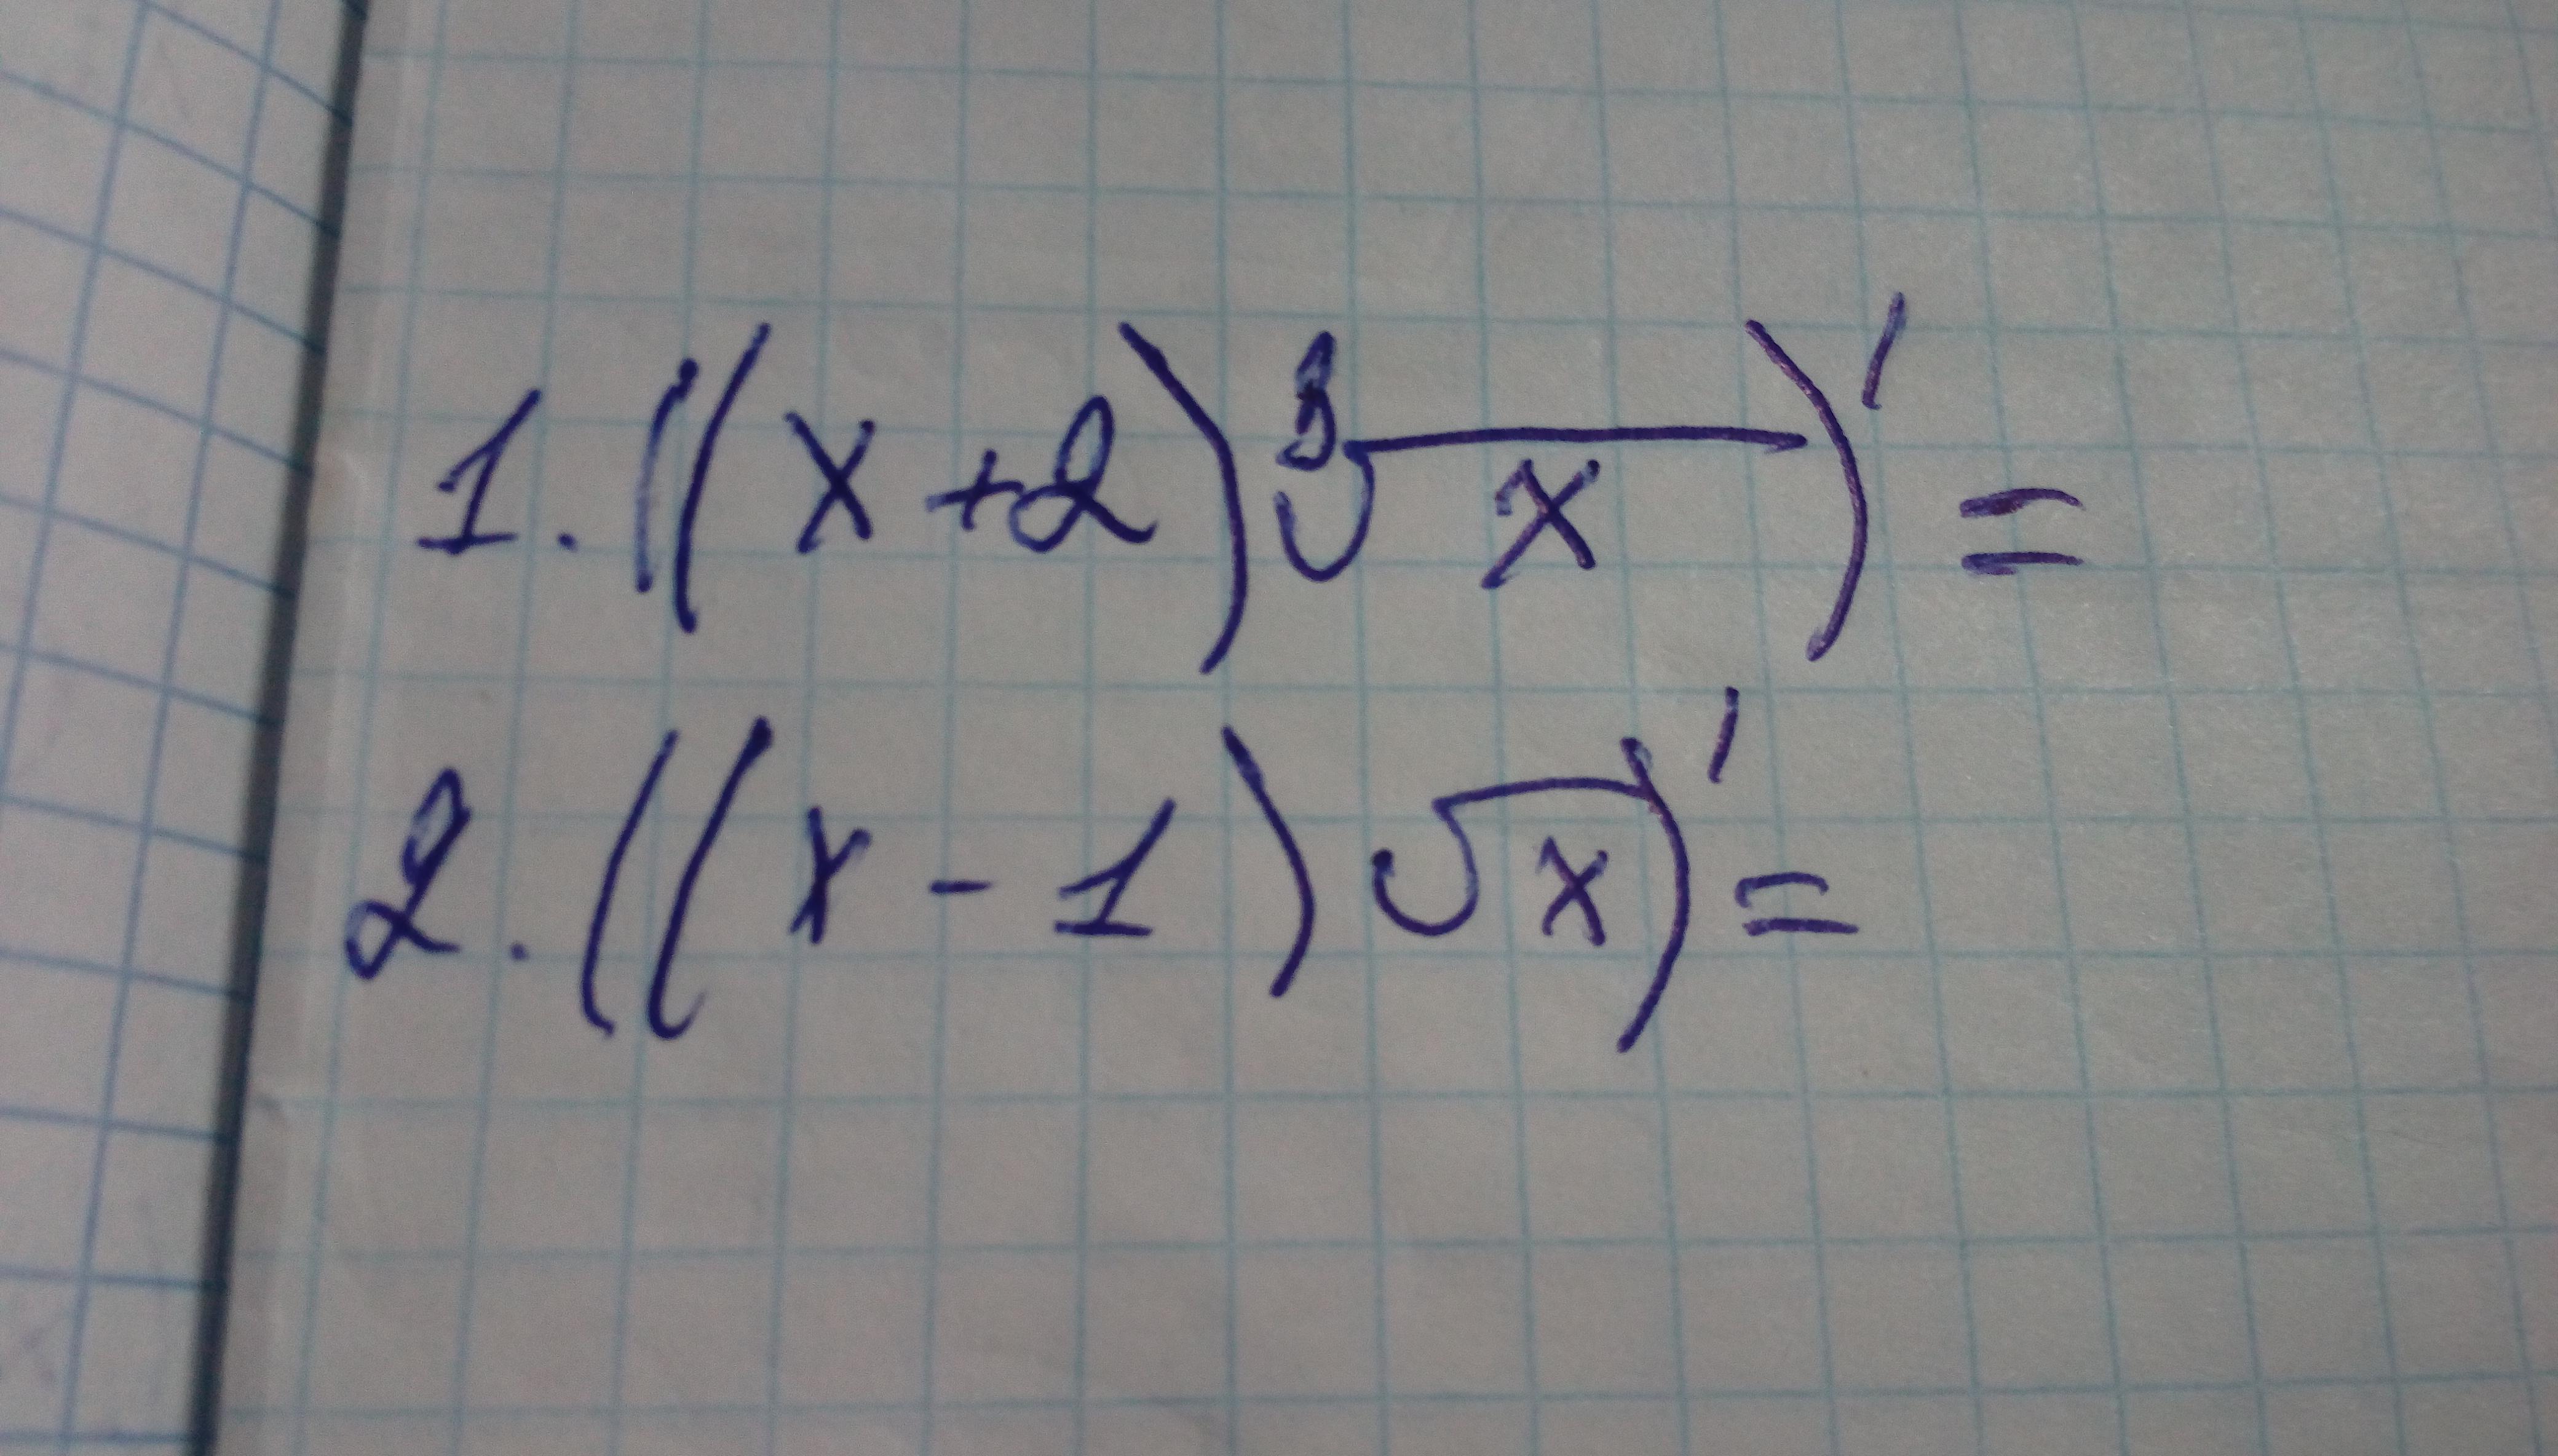 1. ((x+2)∛x)' =
2. ((x-1)√x)' =